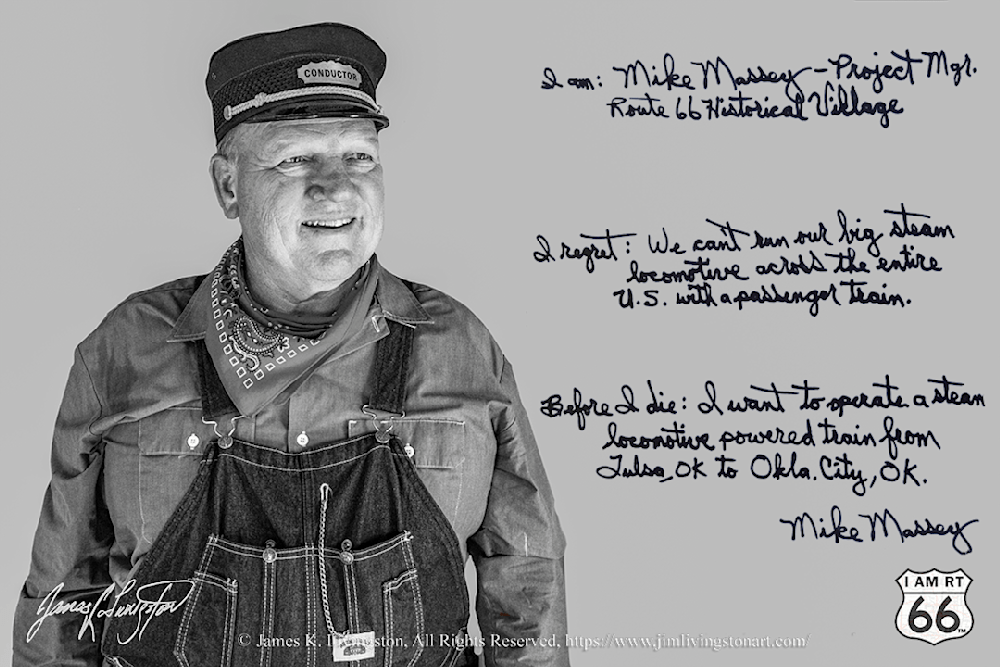 CONDUCTOR
I am: Mike Massey - Project Mgr.
Route 66 Historical Village
I regret: We can't run our big steam
locomotive across the entire
U.S. with a passenger train.
Before I die: I want to operate a steam
locomotive powered train from
Tulsa, OK to Okla. City, OK.
Mike Massey
I AM RT
66
TM
James K. Livingston
© James K. Livingston, All Rights Reserved, https://www.jimlivingstonart.com/